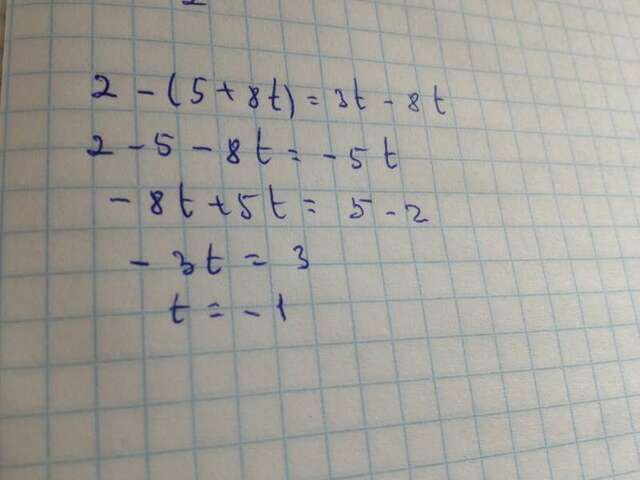 2 - (5 + 8t) = 3t - 8t
2 - 5 - 8t = - 5t
- 8t + 5t = 5 - 2
- 3t = 3
t = - 1